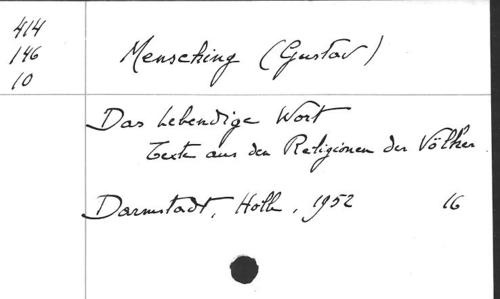 414
146
10
Mensching (Gustav)
Das Lebendige Wort
Texte aus den Religionen der Völker
Darmstadt, Holle, 1952 16